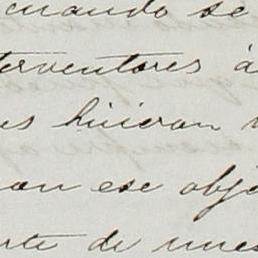 cuando se
terventores á
es hicieran
an ese obje
rte de nues